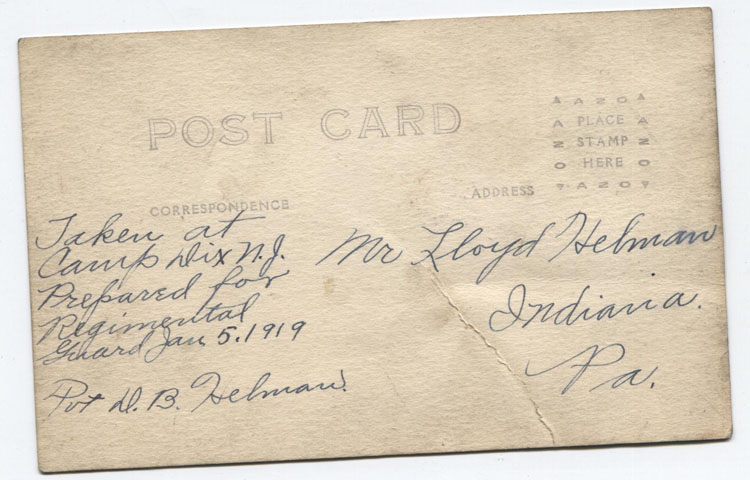 POST CARD
AZOA
PLACE
STAMP
HERE
AZOA
CORRESPONDENCE
ADDRESS
Taken at
Camp Dix N.J.
Prepared for
Regimental
Guard Jan 5. 1919
Pvt D. B. Helman.
Mr Lloyd Helman
Indiana.
Pa.